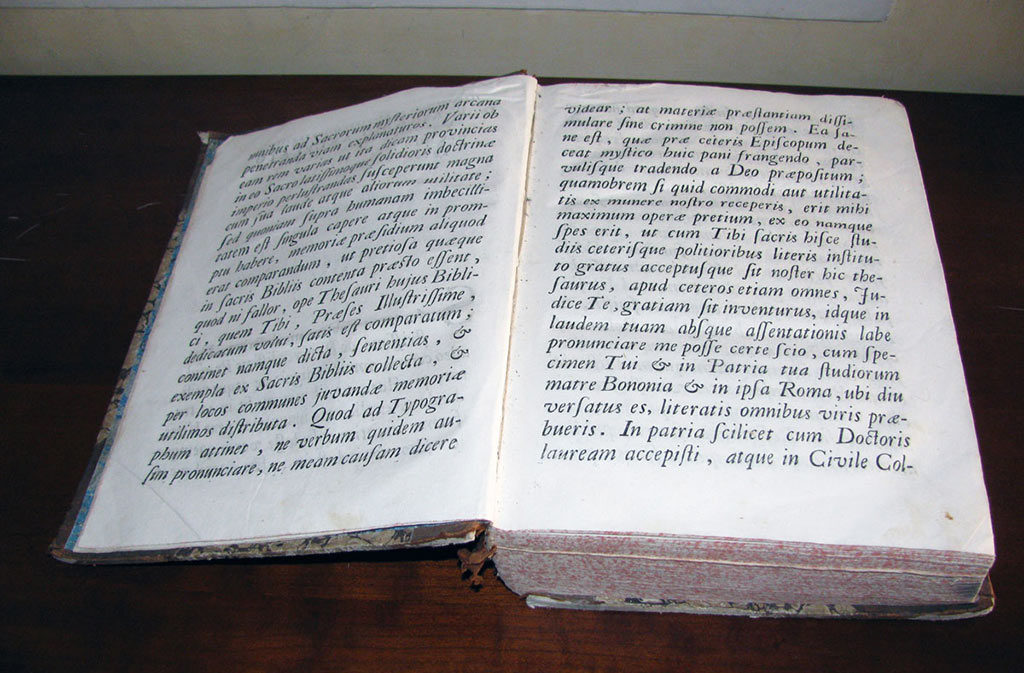 mnibus ad Sacrorum mysteriorum arcana
penetranda viam explanaturos. Varii ob
eam rem varias ut ita dicam provincias
in eo Sacro latissimoque solidioris doctrinæ
imperio perlustrandas susceperunt magna
cum sua laude atque aliorum utilitate;
sed quoniam supra humanam imbecilli-
tatem est singula capere atque in prom-
ptu habere, memoriæ præsidium aliquod
erat comparandum, ut pretiosa quæque
in sacris Bibliis contenta præsto essent,
quod ni fallor, ope Thesauri hujus Bibli-
ci, quem Tibi, Præses Illustrissime,
dedicatum volut, satis est comparatum;
continet namque dicta, sententias, &
exempla ex Sacris Bibliis collecta, &
per locos communes juvandæ memoriæ
utilimos distributa. Quod ad Typogra-
phum attinet, ne verbum quidem au-
sim pronunciare, ne meam causam dicere
videar; at materiæ præstantiam dissi-
mulare sine crimine non possem. Ea sa-
ne est, quæ præ ceteris Episcopum de-
ceat mystico huic pani frangendo, par-
vulisque tradendo a Deo præpositum;
quamobrem si quid commodi aut utilita-
tis ex munere nostro receperis, erit mihi
maximum operæ pretium, ex eo namque
spes erit, ut cum Tibi sacris hisce stu-
diis ceterisque politioribus literis institu-
to gratus acceptusque sit noster hic the-
saurus, apud ceteros etiam omnes, Ju-
dice Te, gratiam sit inventurus, idque in
laudem tuam absque assentationis labe
pronunciare me posse certe scio, cum spe-
cimen Tui & in Patria tua studiorum
matre Bononia & in ipsa Roma, ubi diu
versatus es, literatis omnibus viris præ-
bueris. In patria scilicet cum Doctoris
lauream accepisti, atque in Civile Col-